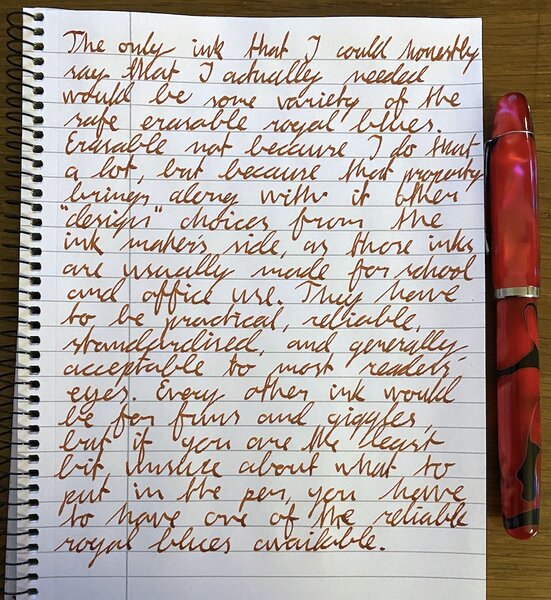 The only ink that I could honestly
say that I actually needed
would be some variety of the
safe erasable royal blues.
Erasable not because I do that
a lot, but because that property
brings along with it other
"design" choices from the
ink maker's side, as those inks
are usually made for school
and office use. They have
to be practical, reliable,
standardised, and generally
acceptable to most readers'
eyes. Every other ink would
be for funs and giggles,
but if you are the least
bit unsure about what to
put in the pen, you have
to have one of the reliable
royal blues available.